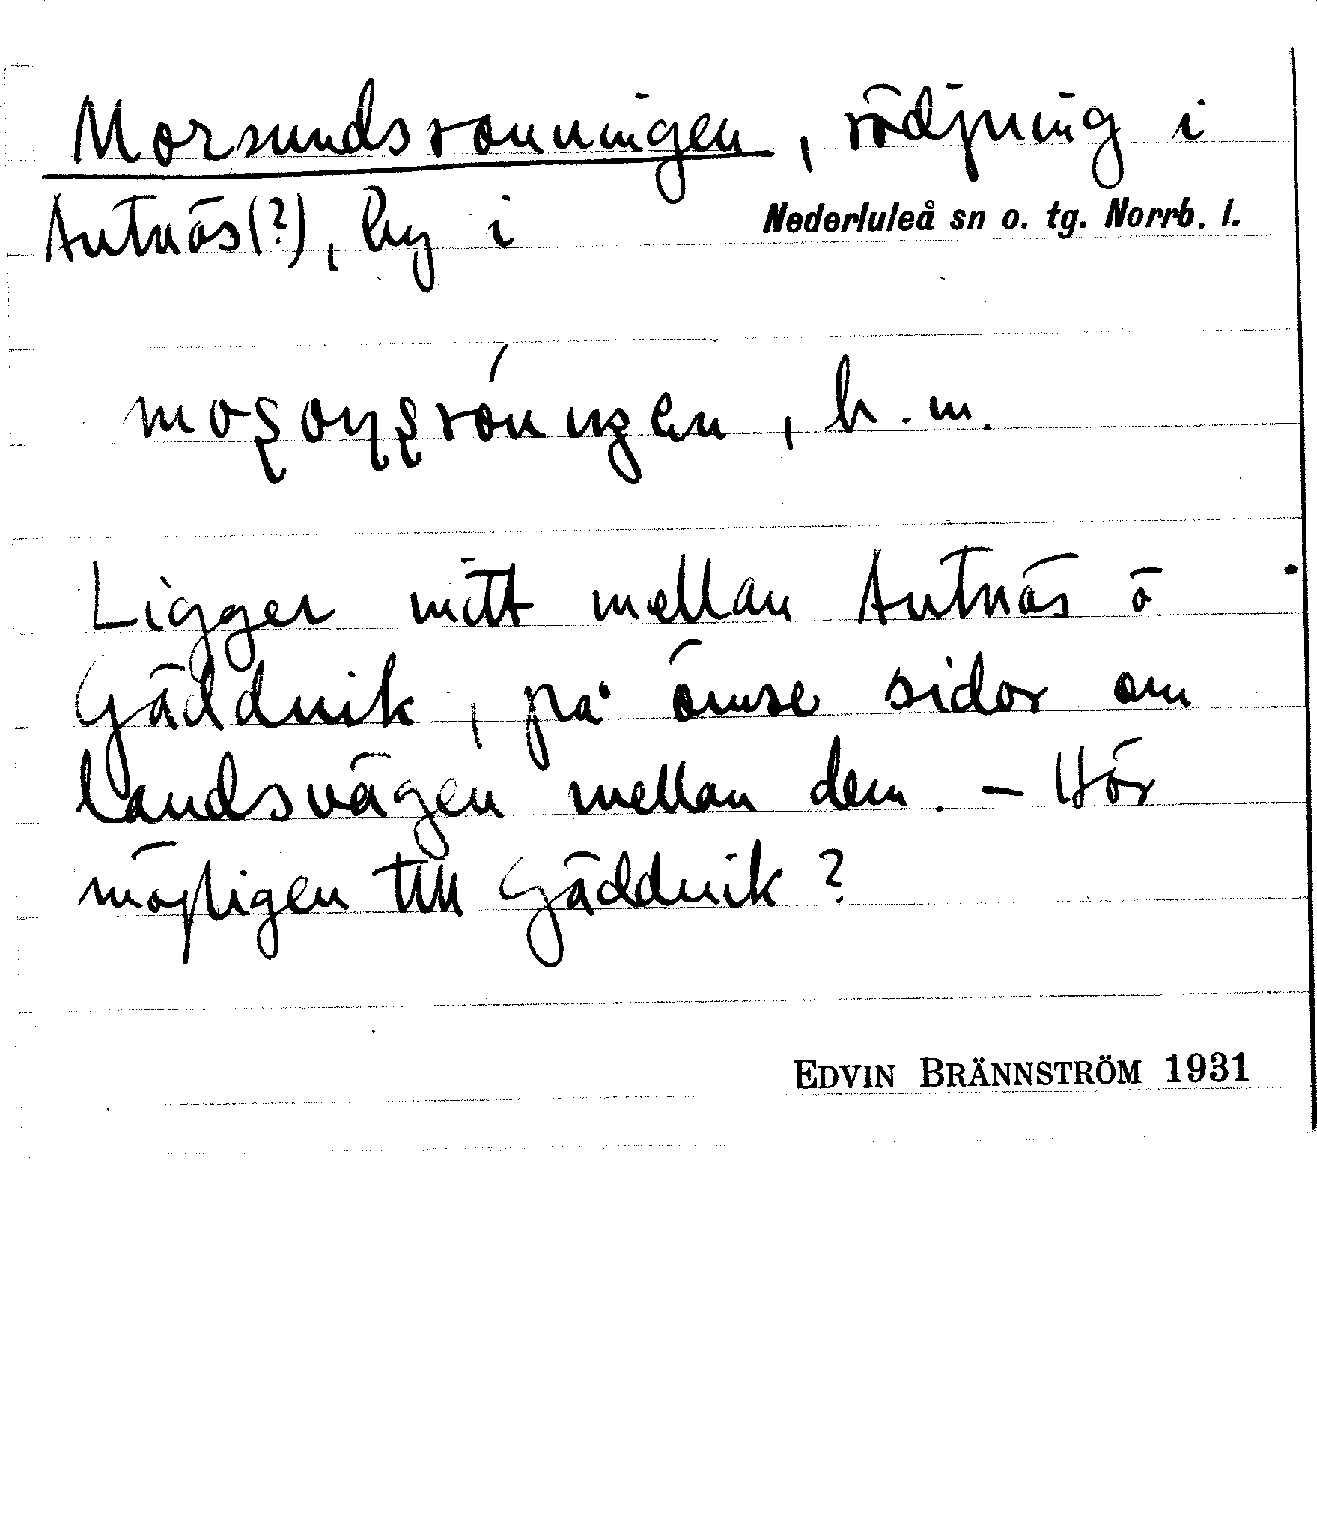 Morsundsrönningen, rödjning i
Antnäs(?), by i Nederluleå sn o. tg. Norrb. l.
b. m.
Ligger mitt mellan Antnäs o
Gäddvik, på ömse sidor om
landsvägen mellan dem. - Hör
möjligen till Gäddvik?
EDVIN BRÄNNSTRÖM 1931